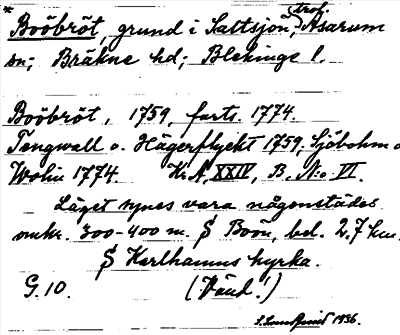 * Boobröt, grund i Saltsjön, trol. Asarum
sn; Bräkne hd; Blekinge l.
Boobröt, 1759, forts. 1774.
Tengwall o. Hägerflycht 1759. Sjöbohm o.
Wolin 1774. Kr. A, XXIV, B. N:o VI.
Läget synes vara någonstädes
omkr. 300-400 m. S Boön, bel. 2.7 km.
S Karlhamns kyrka.
G. 10. (Vänd!)
1936.